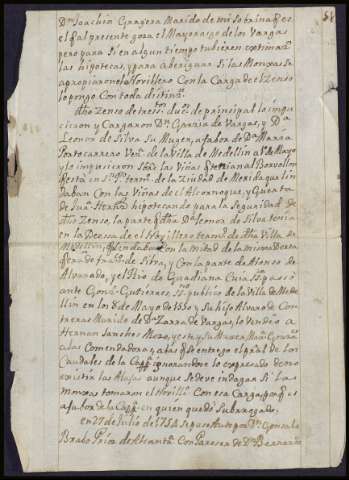 58
Dn Joachin Gragera Marido de mi Sobrina
el qal presente goza el Mayorazgo de los Vargas
pero para Si en algun tiempo tubieren
las hipotecas, y para aberiguar Si las Monxas Se
apropiaron el Horillero Con la Carga de el Zenso
lo pongo Con toda distinn
dho Zenso de tress ducs de principal lo impu
cieron y Cargaron Dn Garzia de Vargas, y Da
Leonor de Silva Su Muger, a fabor de Da Maria
Portocarrero Veza de la Villa de Medellin a 8 de Mayo
y lo impusieron Sobre las Viñas
esta en termo de la Ciudad de Merida que lin
daban Con las Viñas de el Alcornoque, y Guerta de
de Juan hipotecando para la Seguridad de
dho Zenso, la parte q dha Da Leonor de Silva tenia
en la Deesa de el termo de dha Villa de
Medellin, q lindaba con la mitad de la misma Deesa
q era de franco de Silva, y Con la parte de Alonso de
Alvarado, y el Rio de Guadiana Cuia Ssa paso
ante Gonzo Gutierres Sno publico de la Villa de Mede
llin en los 8 de Mayo de 1550 y Su hijo Alvaro de Con
treras Marido de Da Zarra de Vargas, lo Vendio a
Hernan Sanches Mozo, y este, y Su Muger
a las Comendadoras, a las q Se entrego el pral de los
Caudales de la Capa ignorandose lo expresado de no
existir las Alajas aunque Se deve indagar Si las
monxas tomaron el Con esa Carga, porq es
a fabor de la Capa en quien quedo Subrogado.
en 27 de Julio de 1754 Se puso Auto por Dn Gonzalo
Brabo Prior de Alcanta Con Pareser de Dn Bernardo